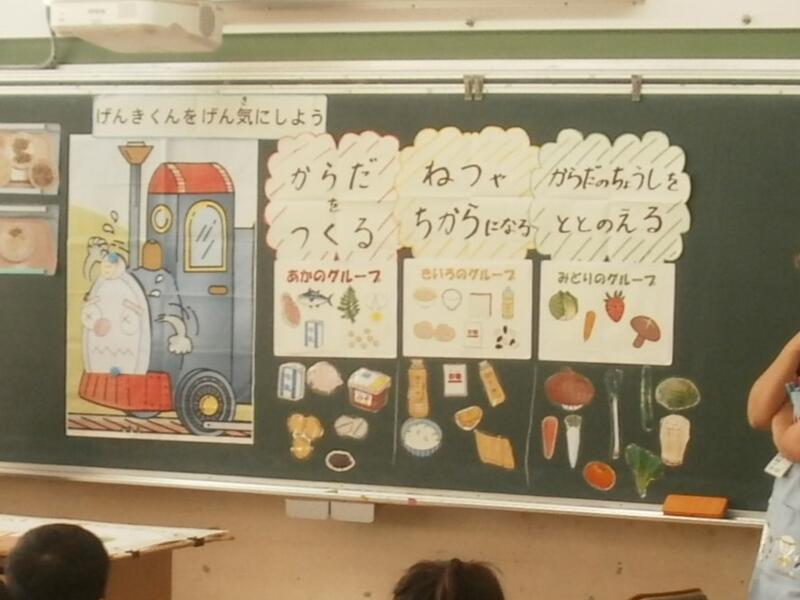 げん気にしよう
き
げんきくんをげん気にしよう
からだ
を
つくる
ねつや
ちからになる
からだのちょうしを
ととのえる
あかのグループ
きいろのグループ
みどりのグループ